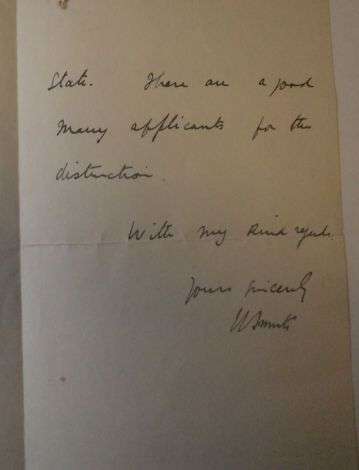 State. There are a good
many applicants for this
distinction.
With my kind regards.
Yours sincerely